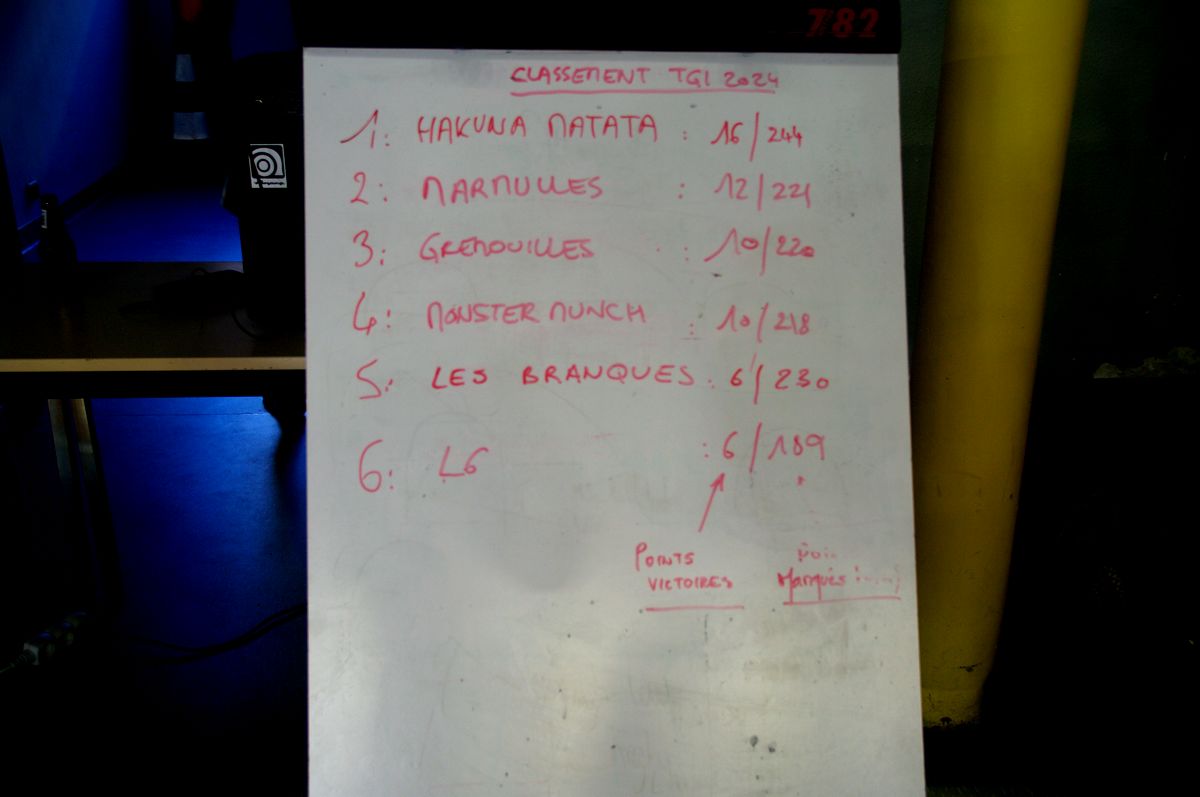 782
CLASSEMENT TGI 2024
1: HAKUNA MATATA : 16/244
2: MARMULLES : 12/221
3: GRENOUILLES : 10/220
4: MONSTER MUNCH : 10/218
5: LES BRANQUES : 6/230
6: LG : 6/189
POINTS
VICTOIRES
Marqués